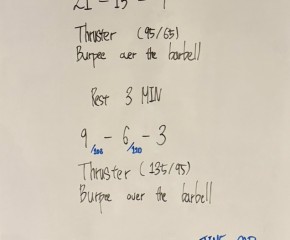 21 - 15 - 9
Thruster (95/65)
Burpee over the barbell
Rest 3 MIN
9 - 6 - 3
Thruster (135/95)
Burpee over the barbell